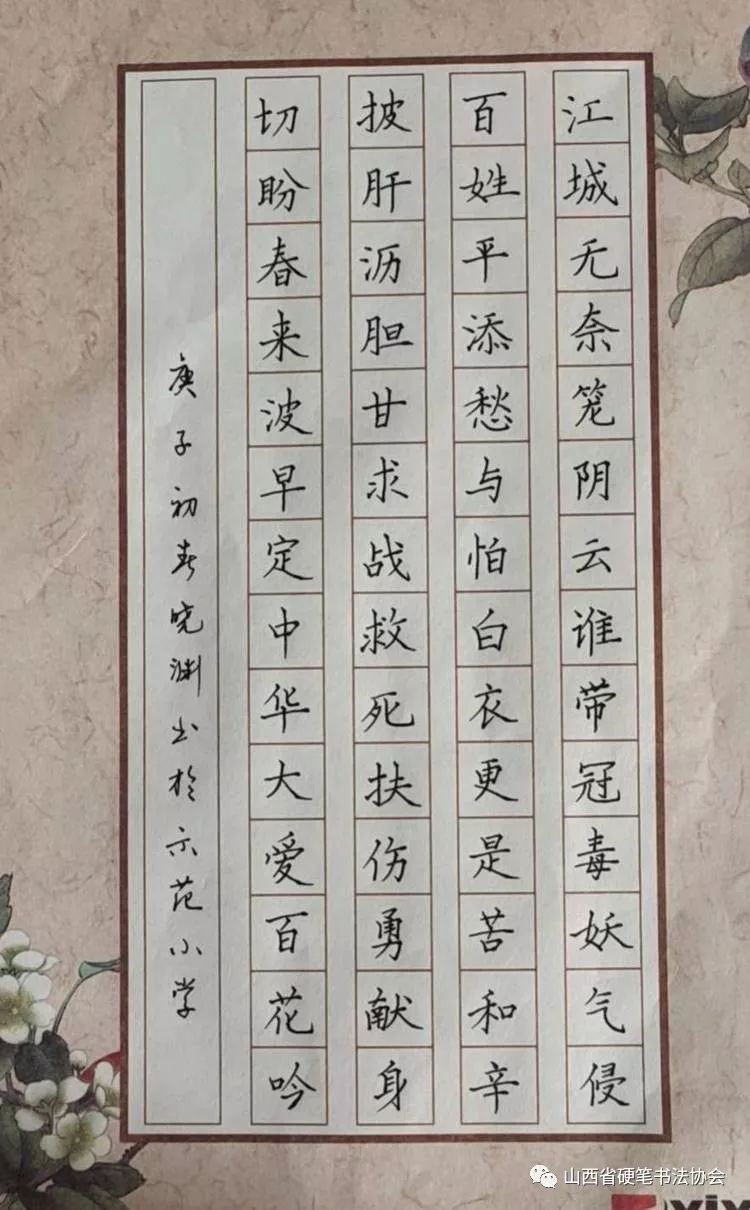 江城无奈笼阴云谁带冠毒妖气侵
百姓平添愁与怕白衣更是苦和辛
披肝沥胆甘求战救死扶伤勇献身
切盼春来波早定中华大爱百花吟
庚子初春晓渊书於示范小学
山西省硬笔书法协会